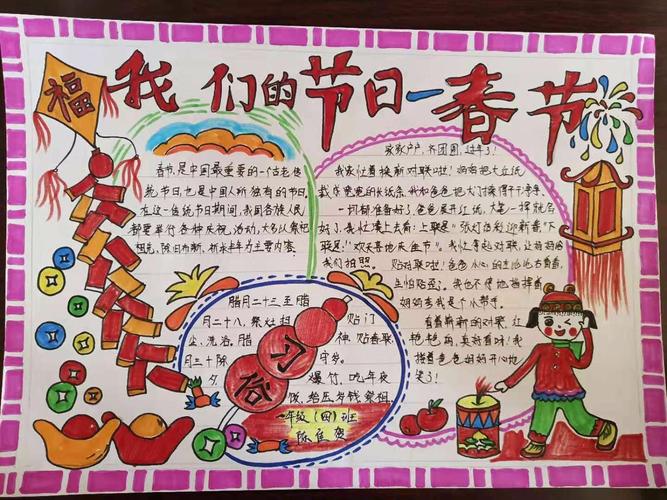 福
我们的节日-春节
春节,是中国最重要的一个古老传
统节日,也是中国人所独有的节日,
在这一传统节日期间,我国各族人民
都要举行各种庆祝活动,大多以祭祀
祖先、除旧布新、祈求丰年为主要内容。
家家户户,齐团圆,过年了!
我家忙着换新对联啦!妈妈把大红纸
裁
纸条。我和爸爸把大门擦得干干净净。
一切都准备好了,爸爸展开红纸,大笔一挥就写
好了,我忙凑上去看:上联是"张灯结彩迎新春"下
联是:"欢天喜地庆佳节"。我忙拿起对联,让妈妈给
我们拍照。
贴对联啦!爸爸小心
生怕贴歪了。我也不停地指挥着
妈妈夸我是个小帮手。
看着崭新的对联,
我
爸爸妈妈开心地
笑了!
腊月二十三至腊
月二十八,祭灶扫
尘、洗浴、腊
月三十除
夕
贴门
神、贴春联
守岁。
爆竹、吃年夜
饭、给压岁钱、祭祖。
习俗
一年级(四)班
陈
贺